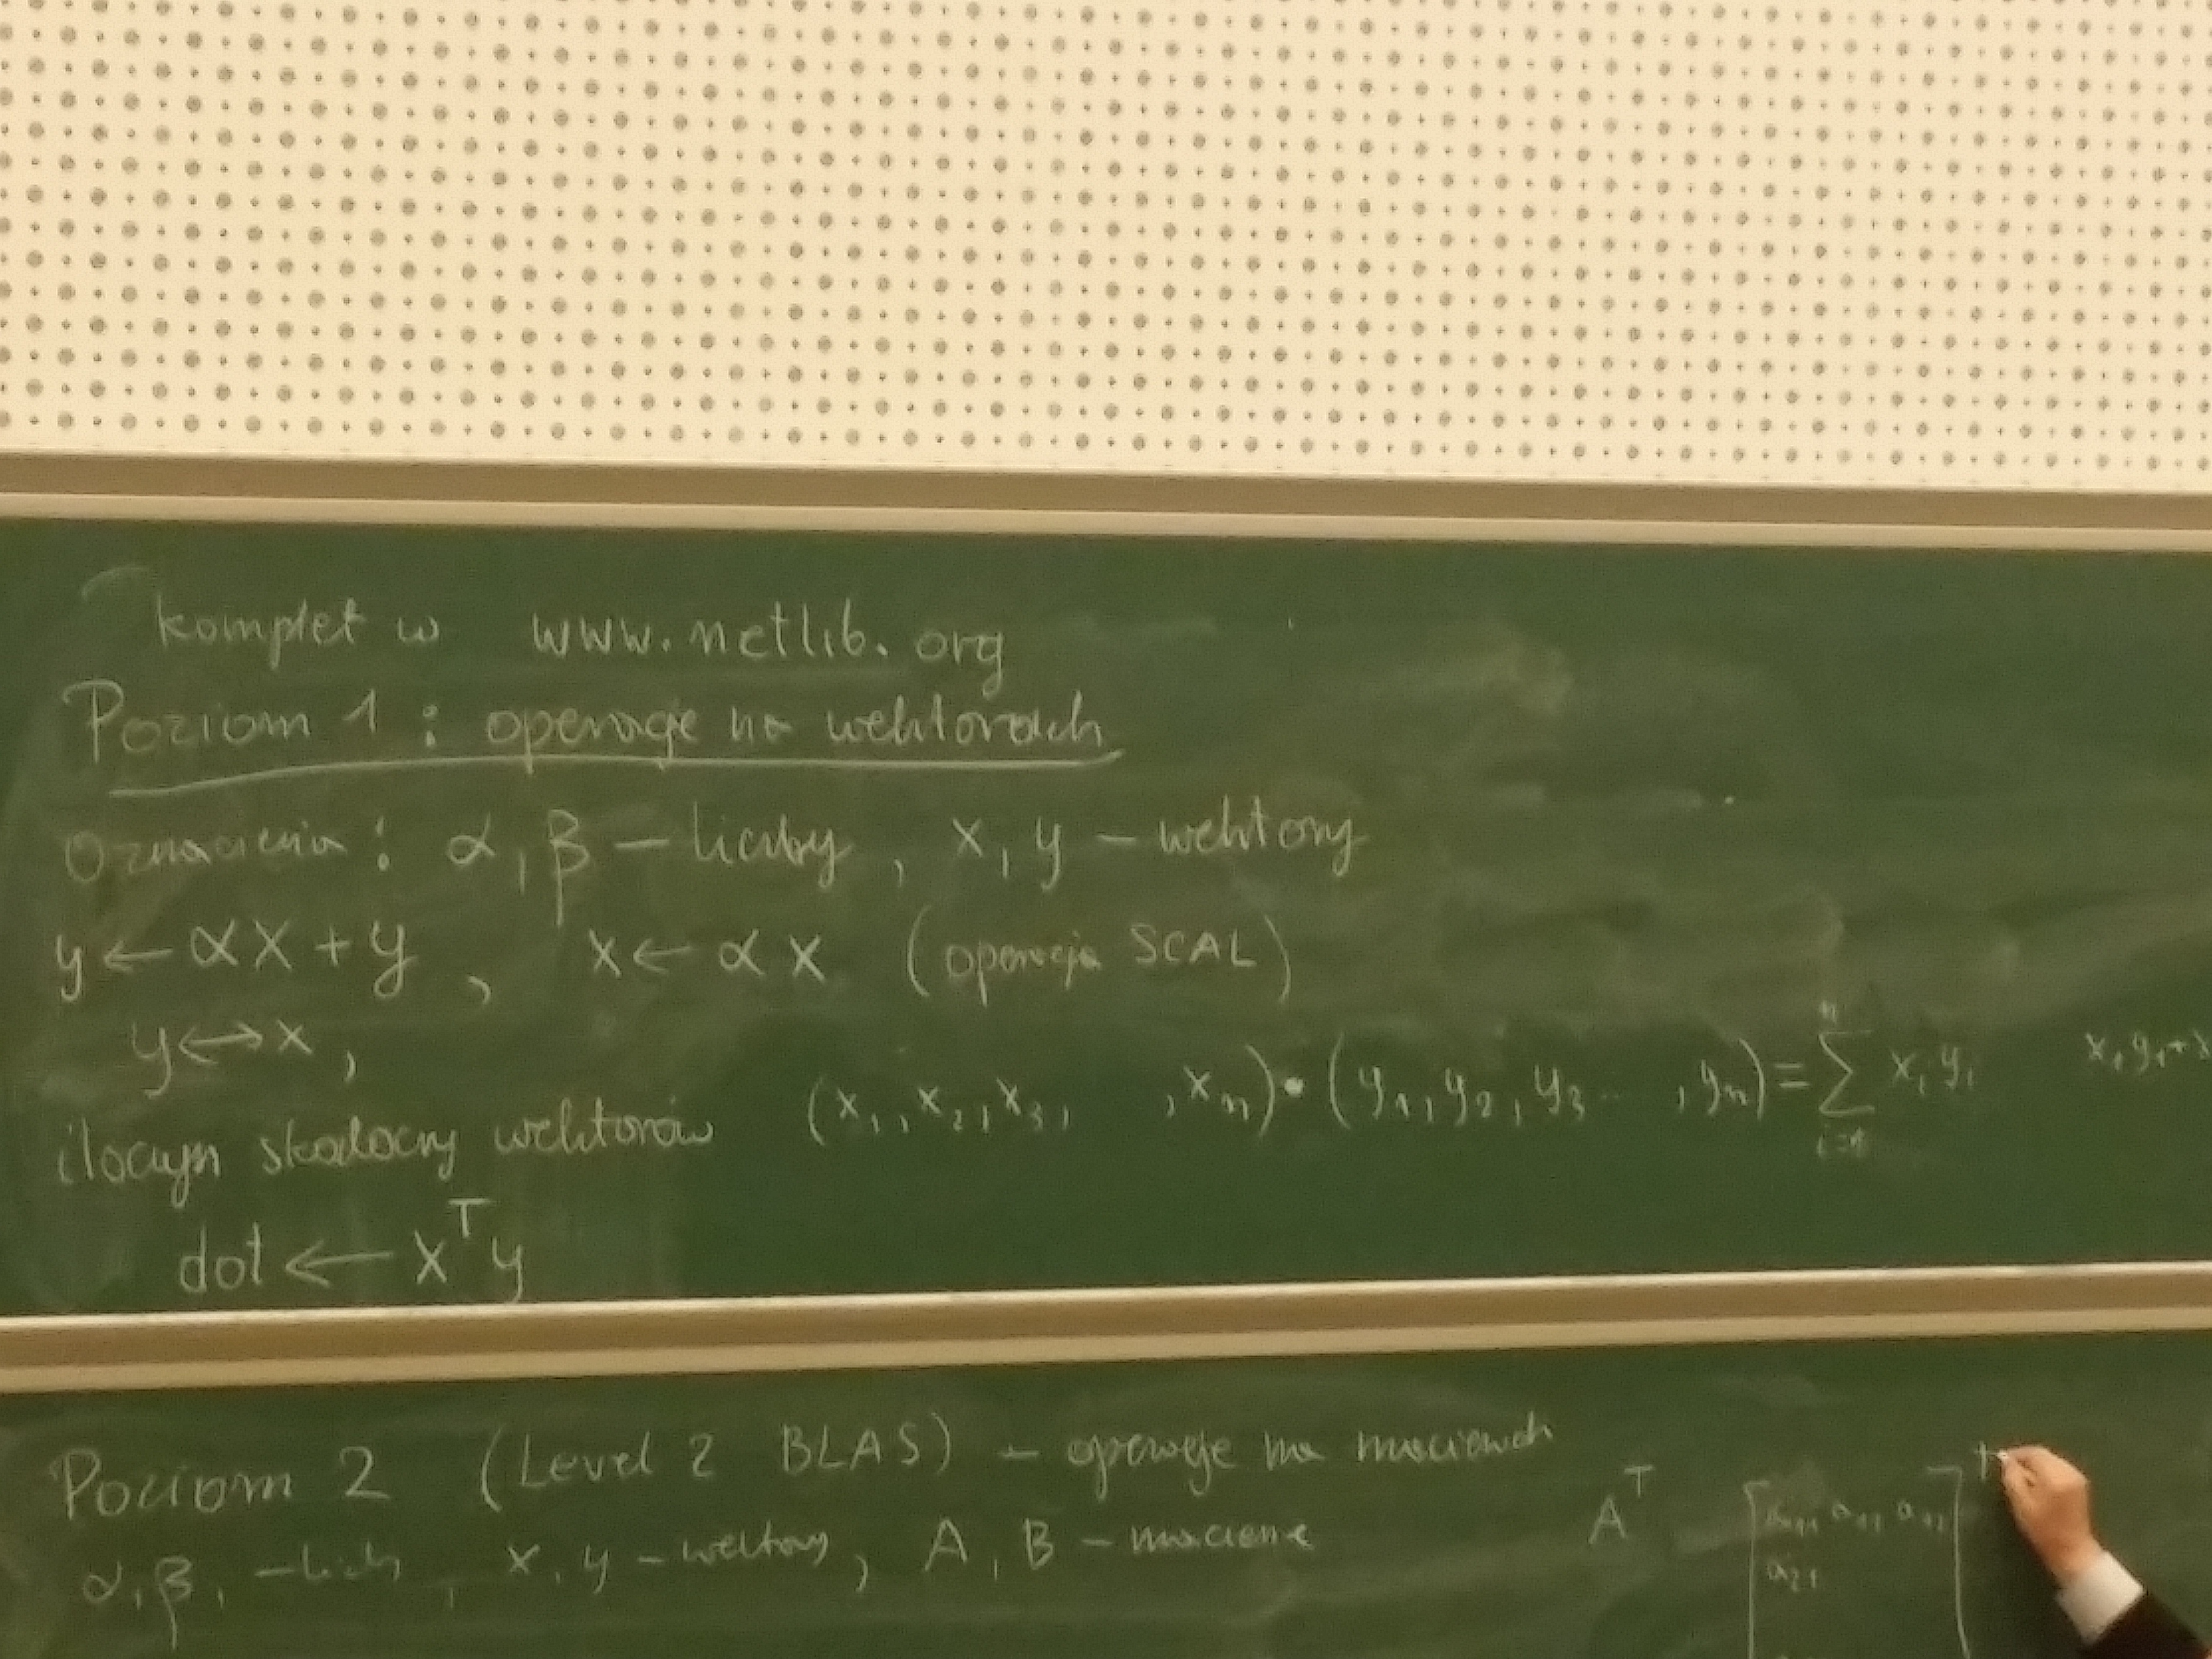 komplet w www.netlib.org
Poziom 1 : operacje na wektorach
Oznaczenia : α, β – liczby , x, y – wektory
y ← αx + y , x ← αx (operacja SCAL)
y ↔ x ,
iloczyn skalarny wektorów (x₁, x₂, x₃, , xₙ) • (y₁, y₂, y₃ ... , yₙ) = ∑ᵢ₌₁ⁿ xᵢ yᵢ x₁y₁ + x
dot ← xᵀy
Poziom 2 (Level 2 BLAS) – operacje na macierzach
α, β, – liczby , x, y – wektory , A, B – macierze Aᵀ
a₂₁